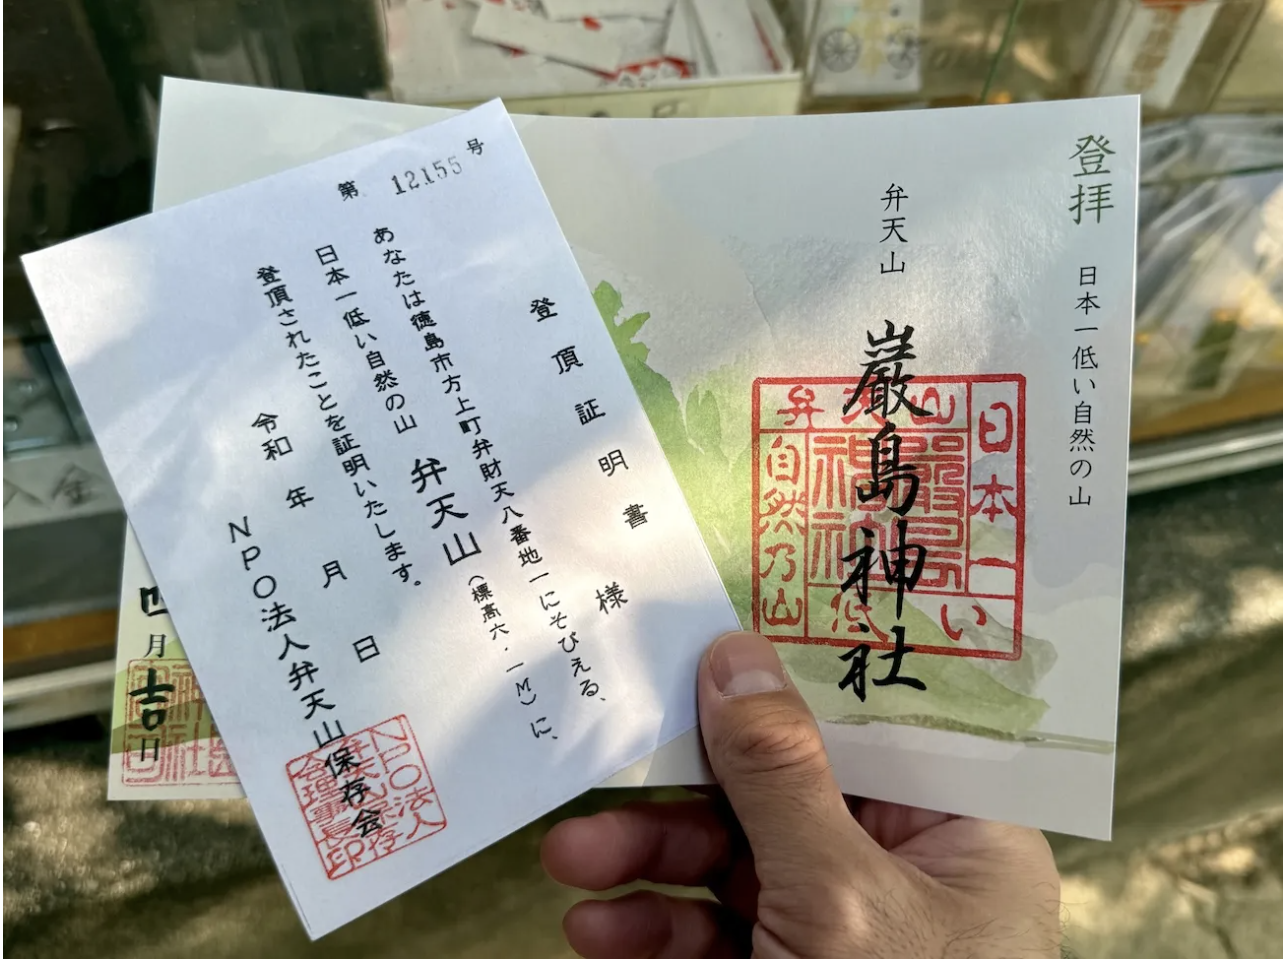 第 12155 号
登頂証明書
様
あなたは徳島市方上町弁財天八番地一にそびえる、
日本一低い自然の山 弁天山(標高六・一M)に、
登頂されたことを証明いたします。
令和 年 月 日
NPO法人弁天山保存会
NPO法人
弁天山保存
会理事長印
登拝 日本一低い自然の山
弁天山 厳島神社
日本一
い
弁天山
厳島
神社
低
自然乃山
四月吉日